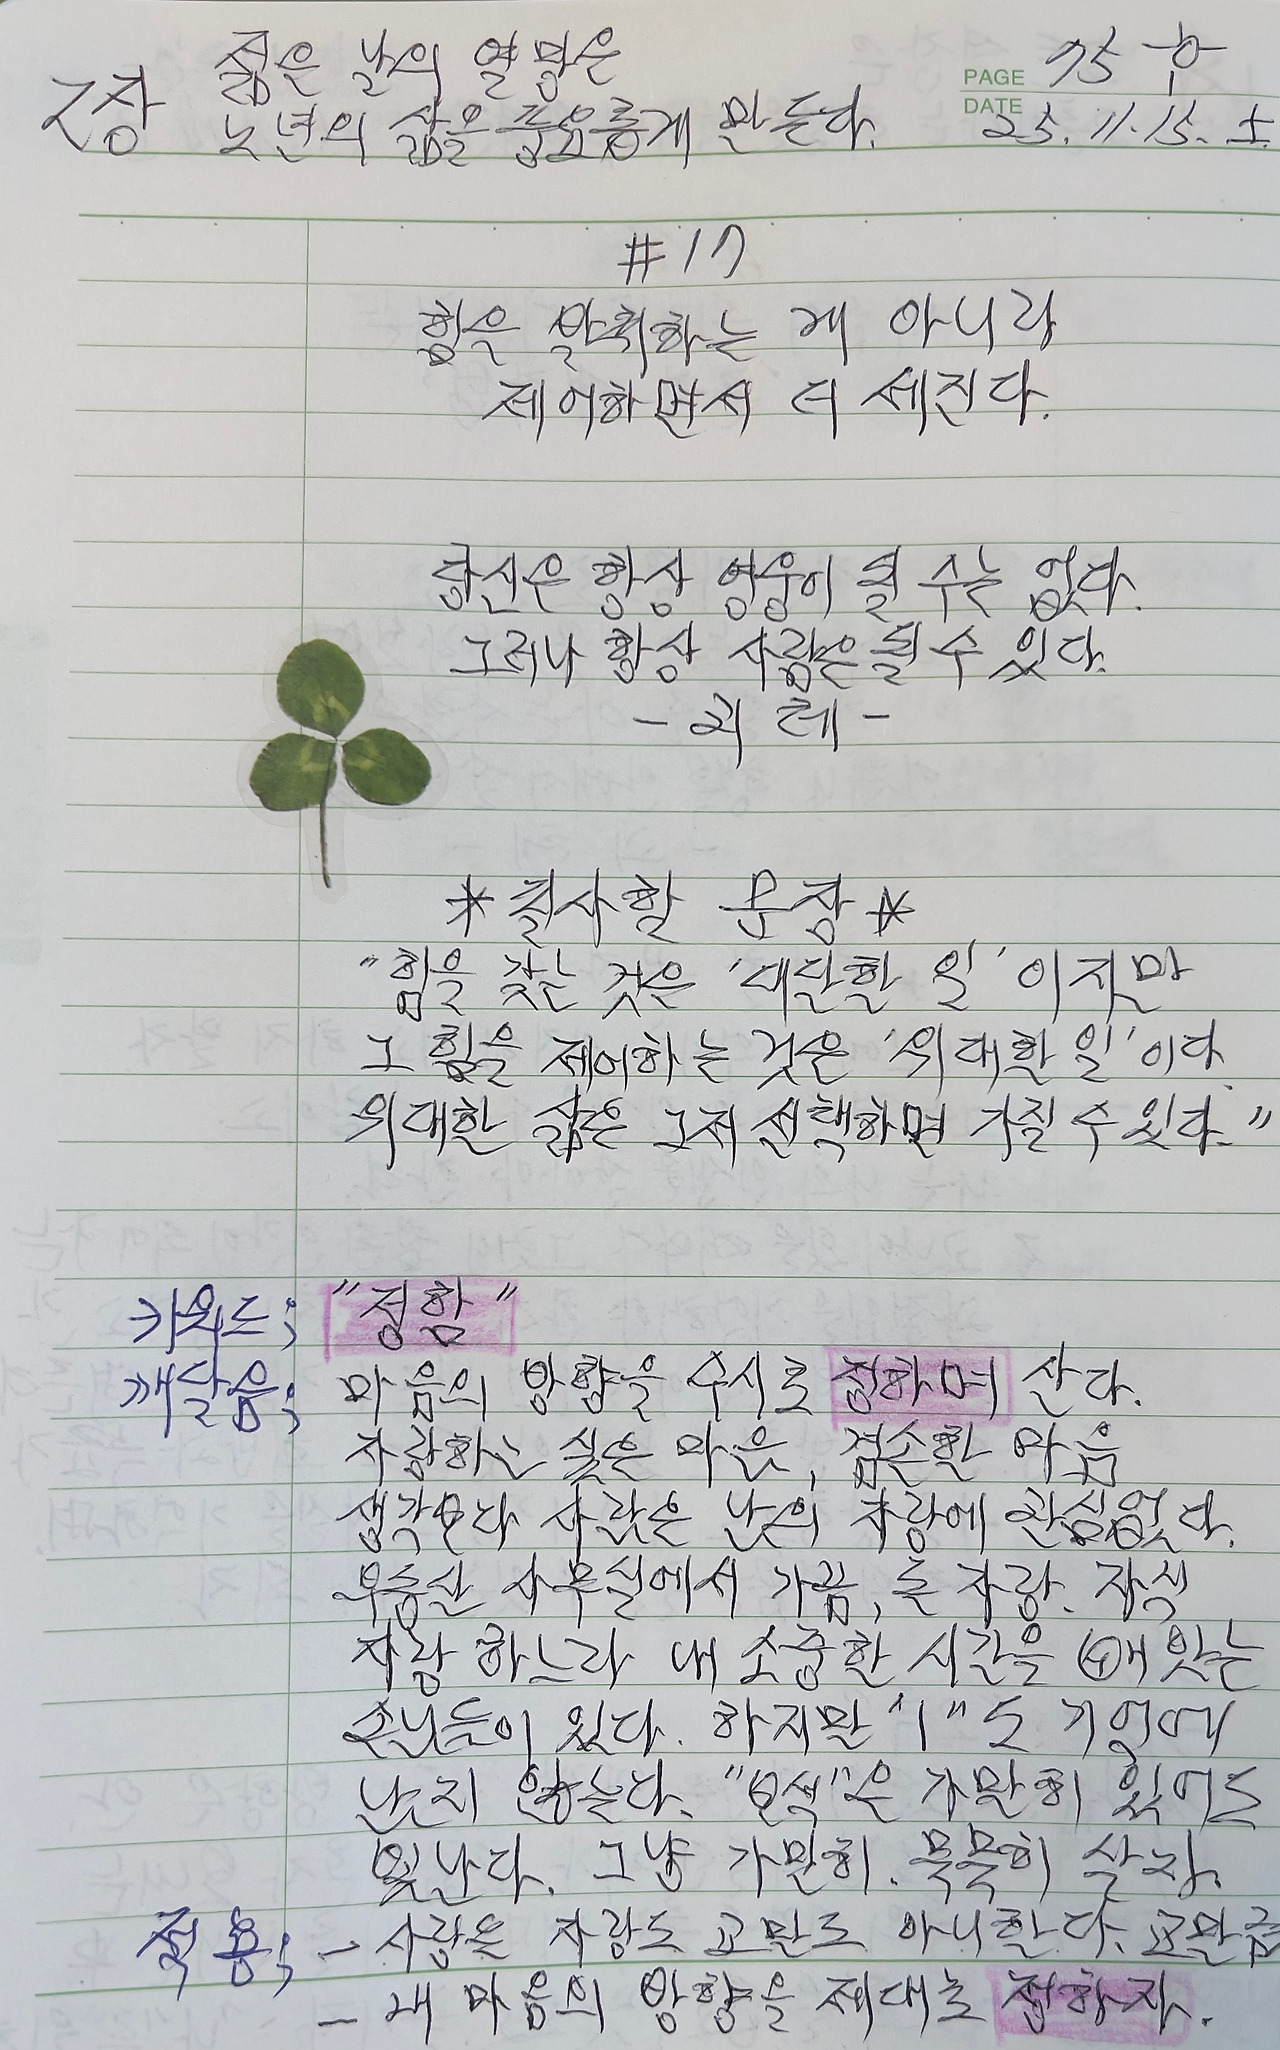 2장 젊은 날의 열망은
노년의 삶을 풍요롭게 만든다.
PAGE 75
DATE 25. 11. 15. 토
#17
힘은 발휘하는 게 아니라
제어하면서 더 세진다.
당신은 항상 영웅이 될 수는 없다.
그러나 항상 사람은 될 수 있다.
- 괴테 -
* 필사할 문장 *
"힘을 갖는 것은 '대단한 일' 이지만
그 힘을 제어하는 것은 '위대한 일'이다.
위대한 삶은 그저 선택하면 가질 수 있다."
키워드; "정함"
깨달음; 마음의 방향을 수시로 정하며 산다.
자랑하는 싶은 마음, 겸손한 마음
생각보다 사람은 남의 자랑에 관심없다.
우중산 사무실에서 가끔, 돈 자랑. 자식
자랑 하느라 내 소중한 시간을 빼앗는
손님들이 있다. 하지만 "1"도 기억에
남지 않는다. "보석"은 가만히 있어도
빛난다. 그냥 가만히. 묵묵히 살자.
적용; - 사랑은 자랑도 교만도 아니한다. 교만금
- 내 마음의 방향을 제대로 정하자.